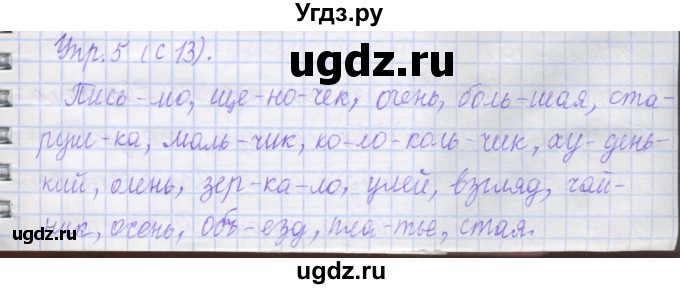 Угдз.ру
Упр. 5 (с 13).
©гдз.ру
Пись-мо, ще-но-чек, очень, боль-шая, ста-
руш-ка, маль-чик, ко-ло-коль-чик, ху-день-
кий, олень, зер-ка-ло, улей, взгляд, чай-
ник, осень, объ-езд, пла-тье, стая.
©гдз.ру
ugdz.ru
ugdz.ru
ugdz.ru
ugdz.ru